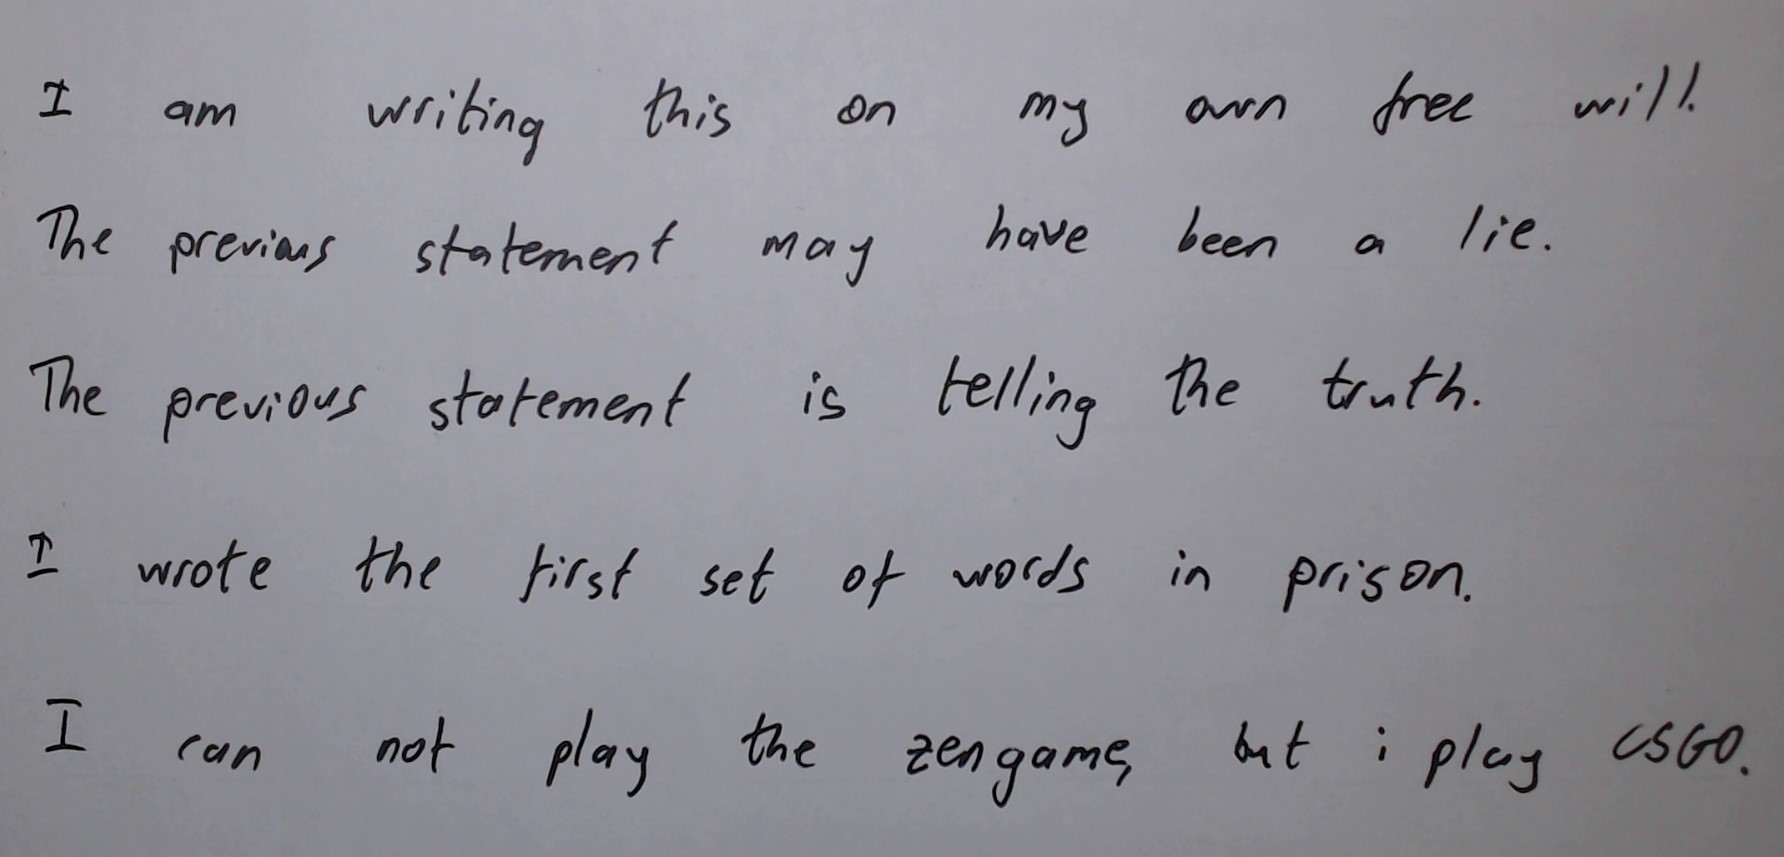 I am writing this on my own free will.
The previous statement may have been a lie.
The previous statement is telling the truth.
I wrote the first set of words in prison.
I can not play the zengame, but i play CSGO.